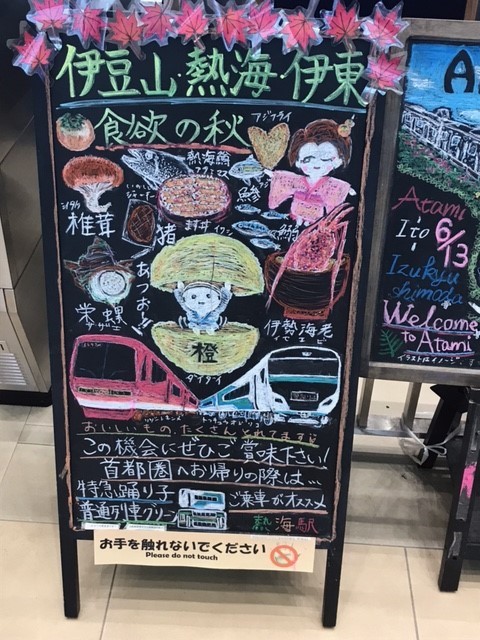 伊豆山・熱海・伊東
食欲の秋
アジフライ
シイタケ
椎茸
いのしし
ジャーキー
猪
熱海鯛
まご丼
イワシ
鯵
鰯
あつおー!!
栄螺
サザエ
橙
ダイダイ
伊勢海老
イセエビ
おいしいもの、たくさんとれてます♪
この機会にぜひご賞味下さい!
首都圏へお帰りの際は…
特急踊り子
普通列車グリーン
ご乗車がオススメ
熱海駅
お手を触れないでください
Please do not touch
A
Atami
Ito
6/13
Izukyu
shimoda
Welcome
to Atami
イラストはイメージ